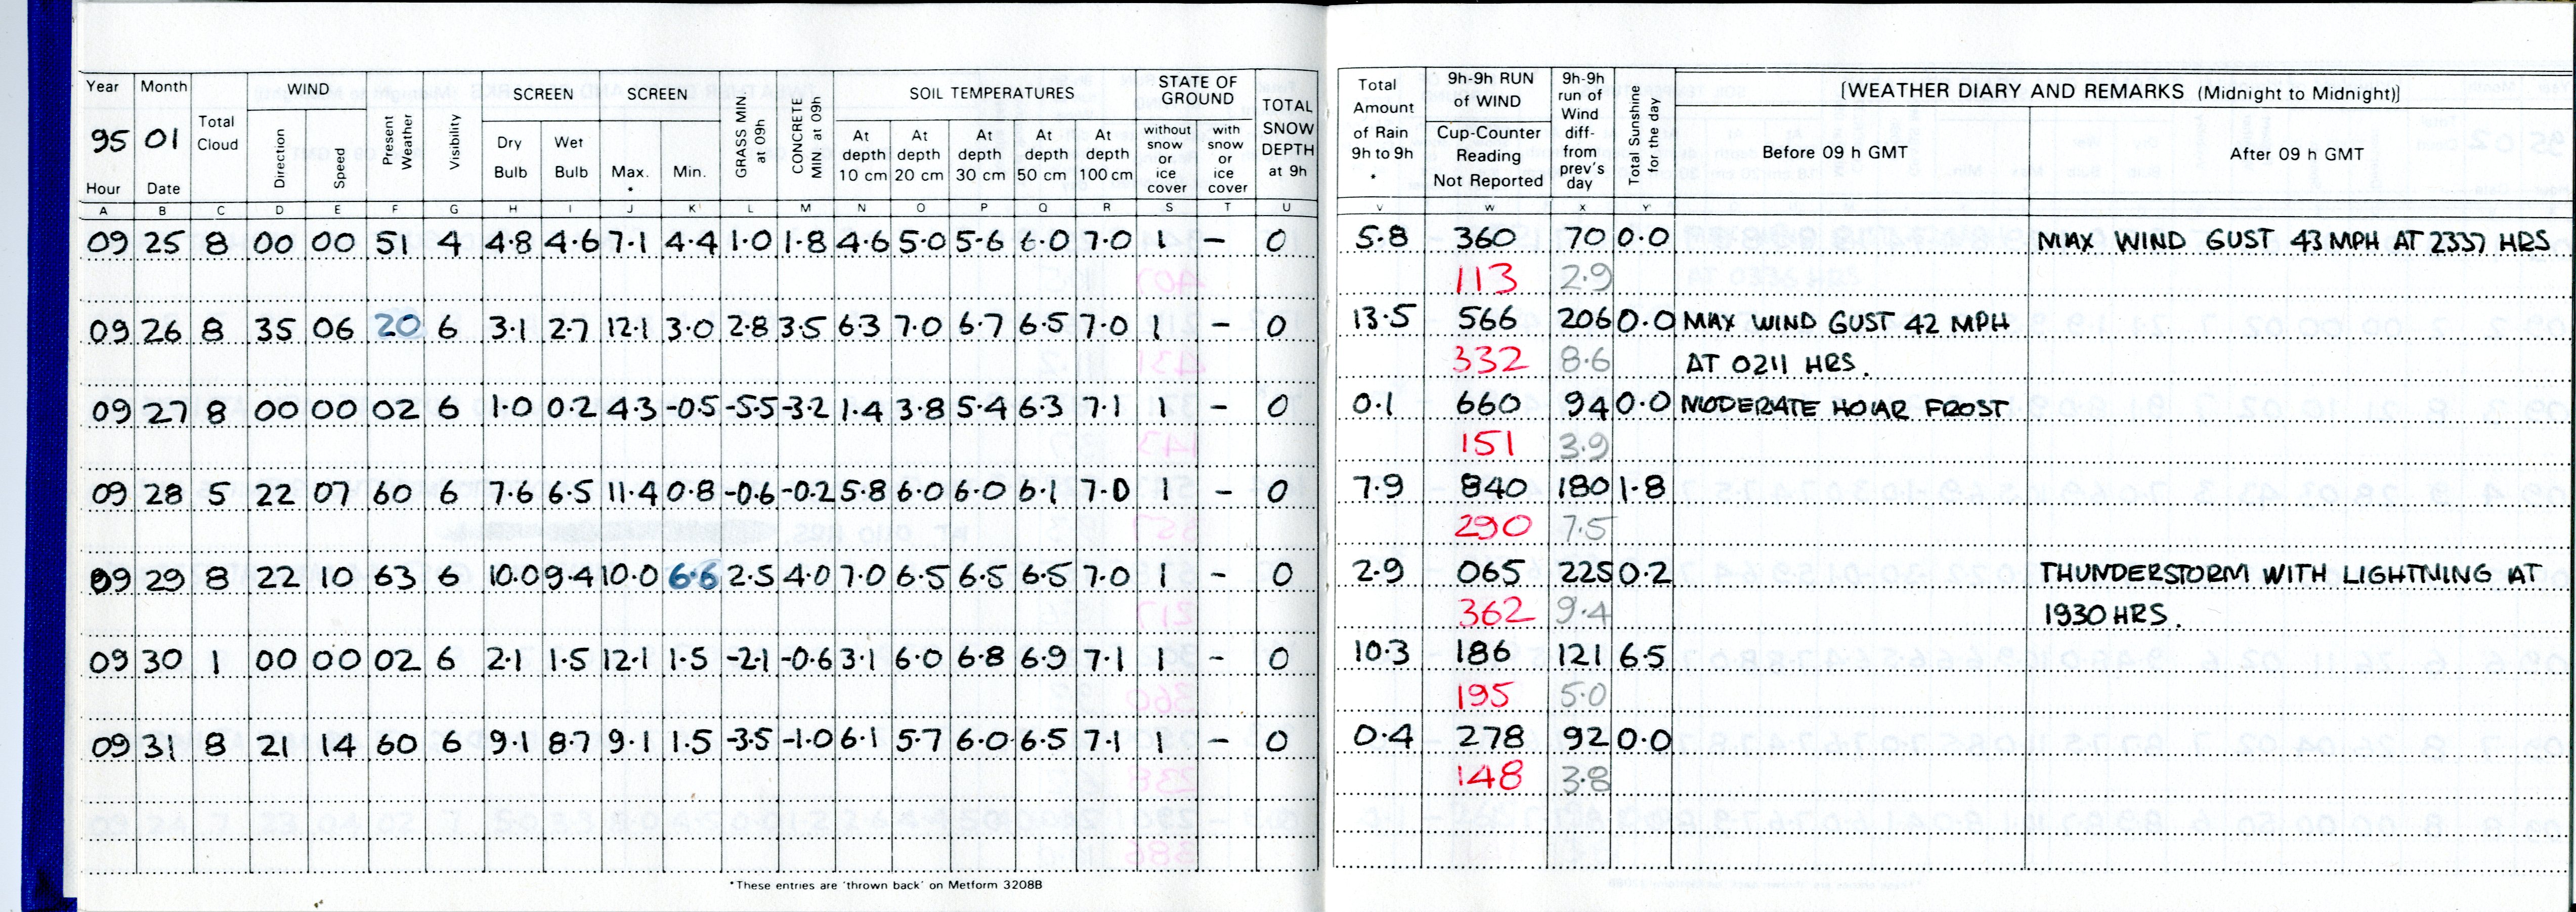 Year Month Total Cloud WIND Present Weather Visibility SCREEN SCREEN GRASS MIN. at 09h CONCRETE MIN at 09h SOIL TEMPERATURES STATE OF GROUND TOTAL SNOW DEPTH at 9h Total Amount of Rain 9h to 9h * 9h-9h RUN of WIND 9h-9h run of Wind diff- from prev's day Total Sunshine for the day [WEATHER DIARY AND REMARKS (Midnight to Midnight)]
95 01 Direction Speed Dry Bulb Wet Bulb Max. * Min. At depth 10 cm At depth 20 cm At depth 30 cm At depth 50 cm At depth 100 cm without snow or ice cover with snow or ice cover Cup-Counter Reading Not Reported Before 09 h GMT After 09 h GMT
Hour Date
A B C D E F G H I J K L M N O P Q R S T U V W X Y
09 25 8 00 00 51 4 4.8 4.6 7.1 4.4 1.0 1.8 4.6 5.0 5.6 6.0 7.0 1 – 0 5.8 360 70 0.0 MAX WIND GUST 43 MPH AT 2337 HRS
113 2.9
09 26 8 35 06 20 6 3.1 2.7 12.1 3.0 2.8 3.5 6.3 7.0 6.7 6.5 7.0 1 – 0 13.5 566 206 0.0 MAX WIND GUST 42 MPH
332 8.6 AT 0211 HRS.
09 27 8 00 00 02 6 1.0 0.2 4.3 -0.5 -5.5 -3.2 1.4 3.8 5.4 6.3 7.1 1 – 0 0.1 660 94 0.0 MODERATE HOAR FROST
151 3.9
09 28 5 22 07 60 6 7.6 6.5 11.4 0.8 -0.6 -0.2 5.8 6.0 6.0 6.1 7.0 1 – 0 7.9 840 180 1.8
290 7.5
09 29 8 22 10 63 6 10.0 9.4 10.0 6.6 2.5 4.0 7.0 6.5 6.5 6.5 7.0 1 – 0 2.9 065 225 0.2 THUNDERSTORM WITH LIGHTNING AT
362 9.4 1930 HRS.
09 30 1 00 00 02 6 2.1 1.5 12.1 1.5 -2.1 -0.6 3.1 6.0 6.8 6.9 7.1 1 – 0 10.3 186 121 6.5
195 5.0
09 31 8 21 14 60 6 9.1 8.7 9.1 1.5 -3.5 -1.0 6.1 5.7 6.0 6.5 7.1 1 – 0 0.4 278 92 0.0
148 3.8
*These entries are 'thrown back' on Metform 3208B